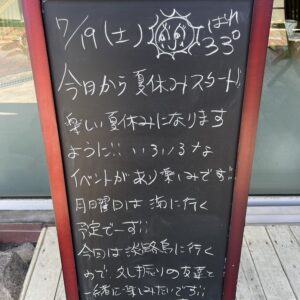 7/19(土) はれ 33°
今日から夏休みスタート!!
楽しい夏休みになります
ように!! いろいろな
イベントがあり楽しみです!!
月日曜日は海に行く
予定でーす!!
今日は淡路島に行く
ので久し振りの友達と
一緒に楽しみたいです!!